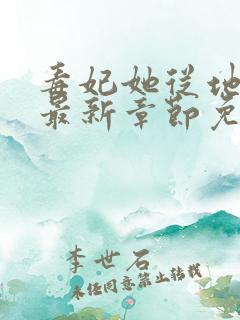 毒妃她从地
最新章节免
李世石
未经同意禁止转载